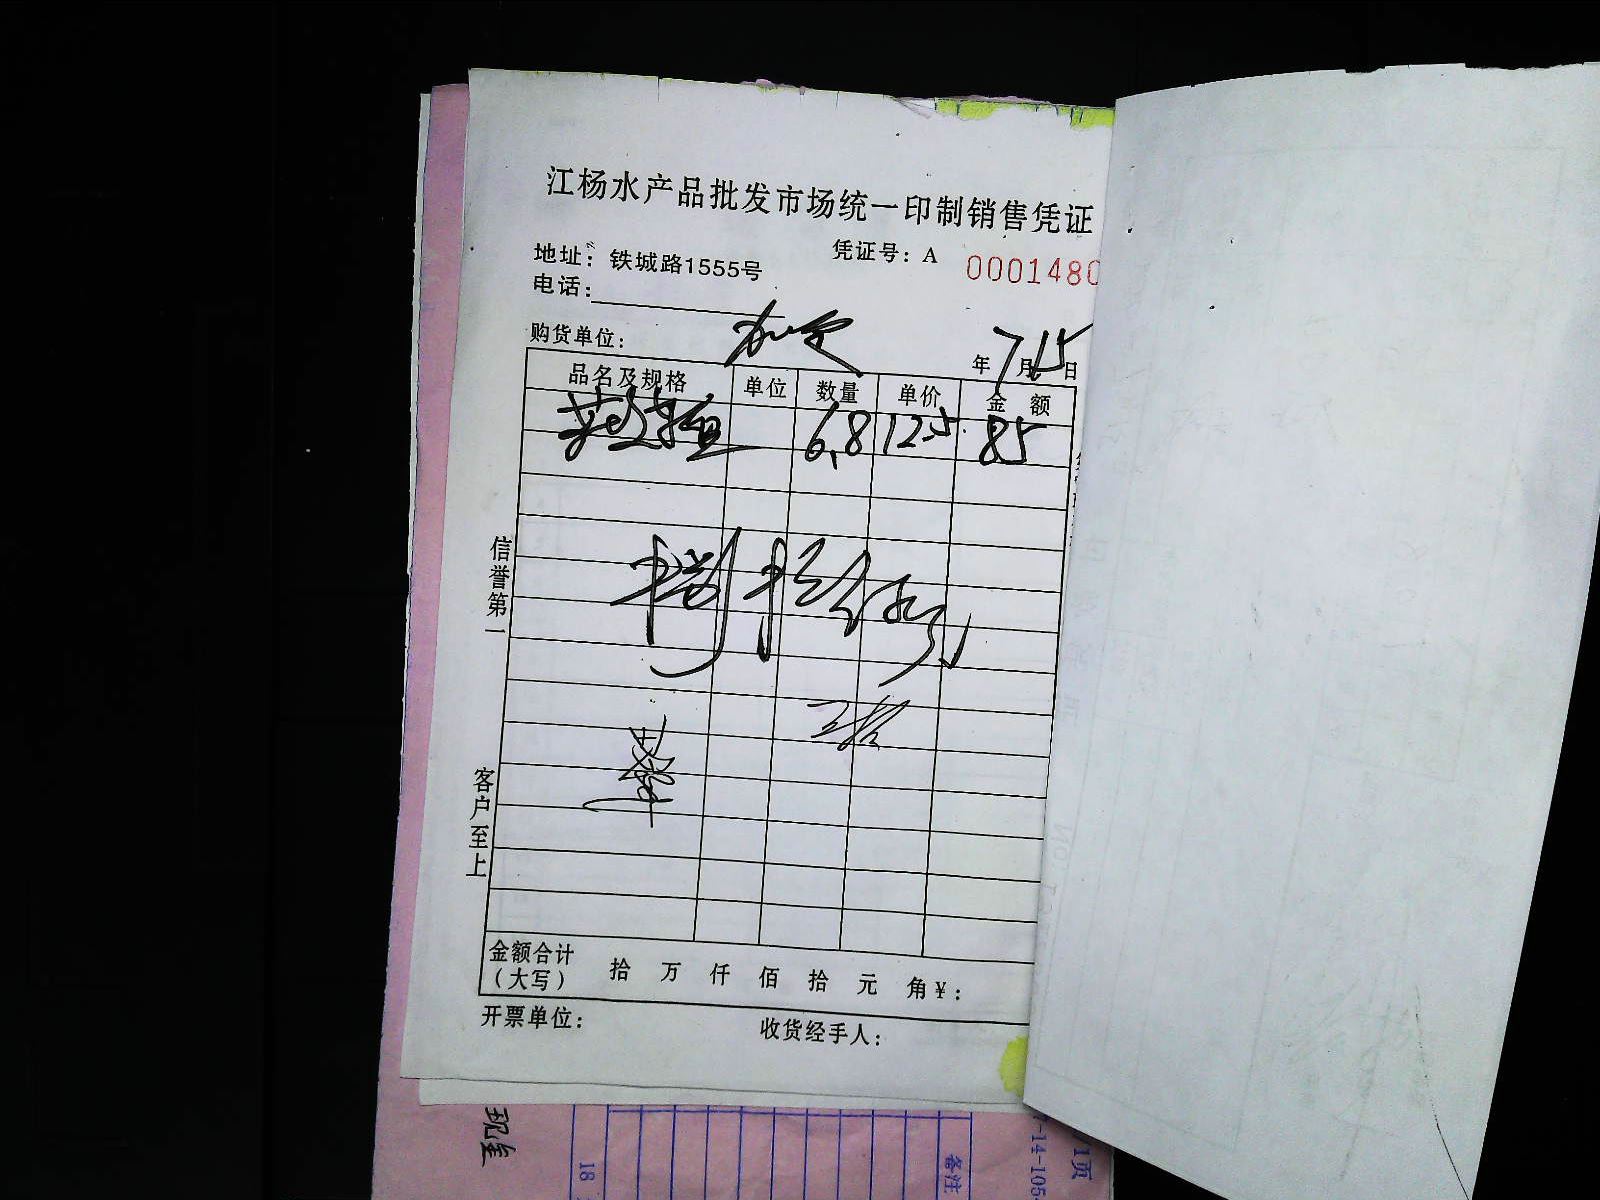 江杨水产品批发市场统一印制销售凭证
地址：铁城路1555号
凭证号：A 0001480
电话：
购货单位：
年7月15日
品名及规格 单位 数量 单价 金额
6.8 12.5 85
捌拾伍
信誉第一
客户至上
金额合计
（大写）
拾 万 仟 佰 拾 元 角￥：
开票单位：
收货经手人：
现金
18
备注
-14-105
1页